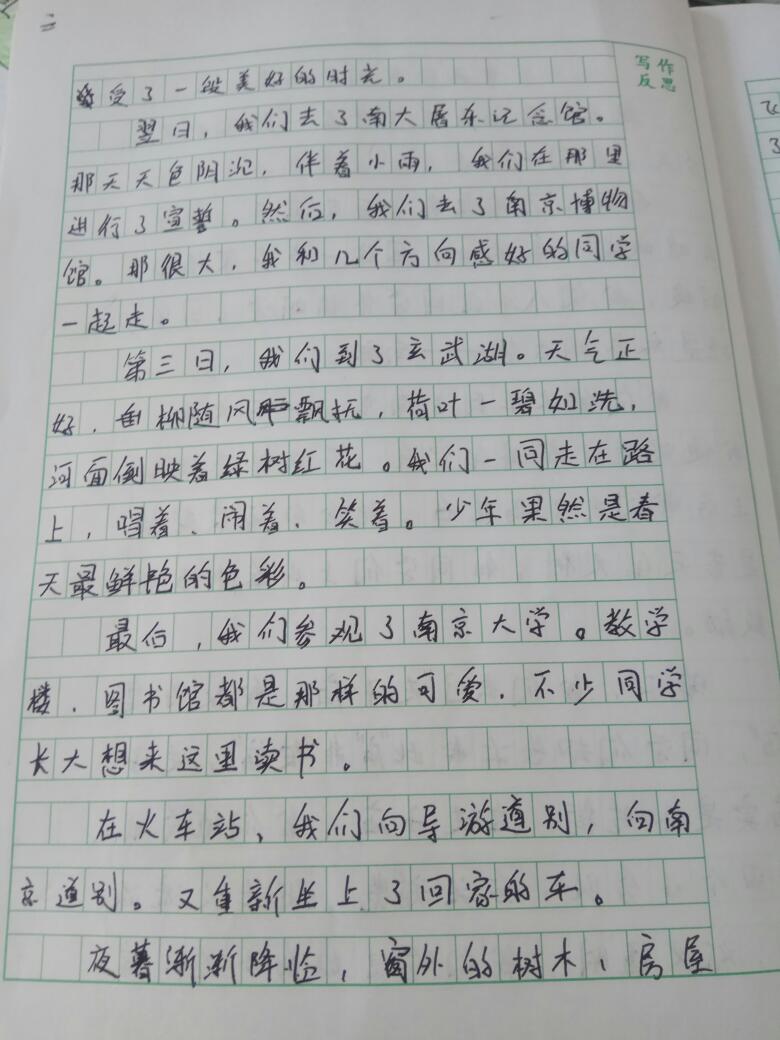 二
写作
反思
受了一段美好的时光。
翌日，我们去了南大屠杀记念馆。
那天天色阴沉，伴着小雨，我们在那里
进行了宣誓。然后，我们去了南京博物
馆。那很大，我和几个方向感好的同学
一起走。
第三日，我们到了玄武湖。天气正
好，垂柳随风飘抚，荷叶一碧如洗，
河面倒映着绿树红花。我们一同走在路
上，唱着、闹着、笑着。少年果然是春
天最鲜艳的色彩。
最后，我们参观了南京大学。教学
楼、图书馆都是那样的可爱，不少同学
长大想来这里读书。
在火车站，我们向导游道别，向南
京道别。又重新坐上了回家的车。
夜暮渐渐降临，窗外的树木、房屋